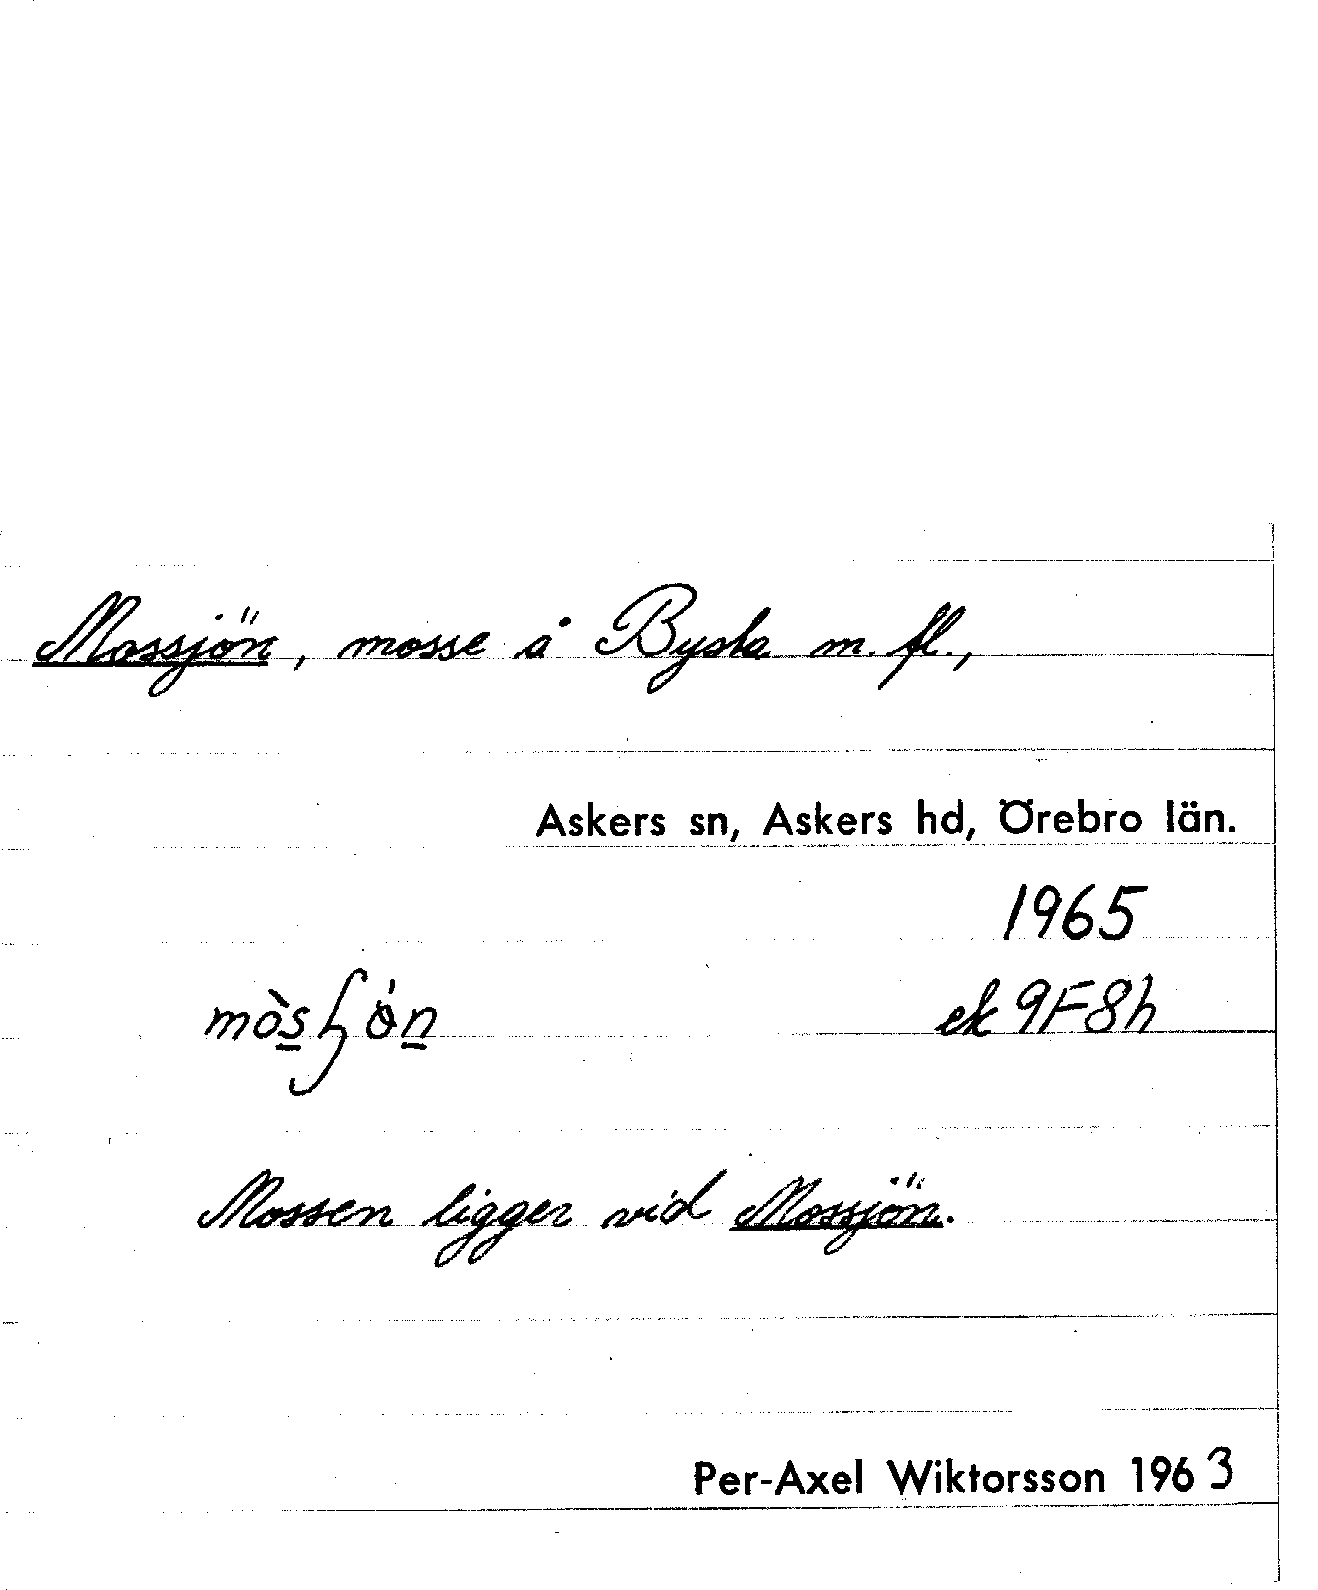 Mossjön, mosse å Bysta m. fl.,
Askers sn, Askers hd, Örebro län.
1965
ek 9F8h
Mossen ligger vid Mossjön.
Per-Axel Wiktorsson 1963